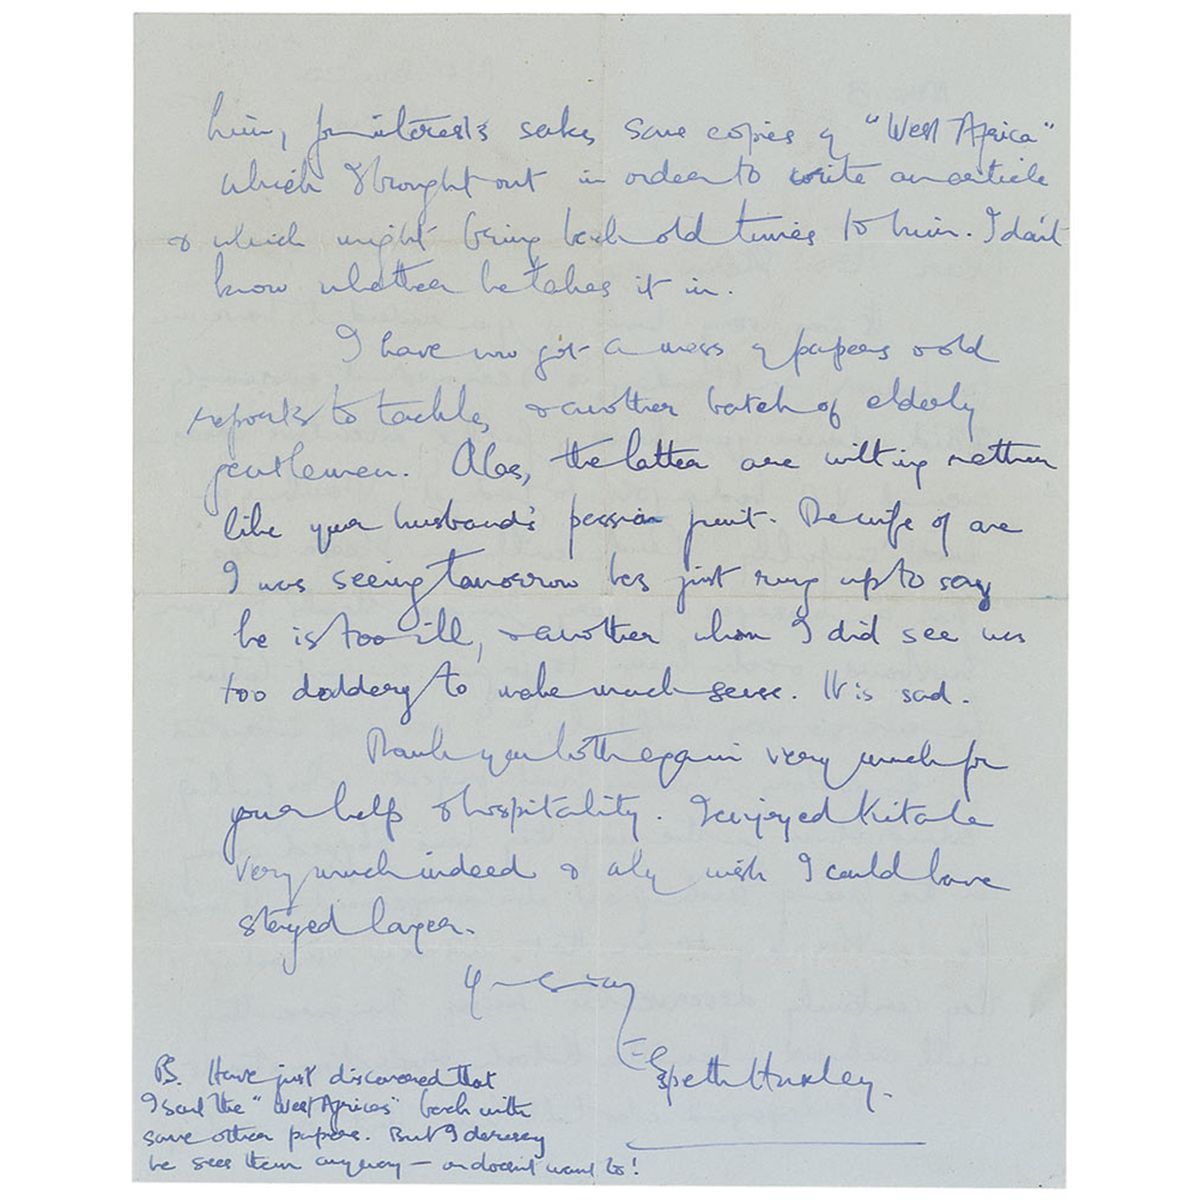 him, for interest's sake, some copies of "West Africa"
which I brought out in order to write an article
& which might bring back old times to him. I don't
know whether he takes it in.
I have now got a mess of papers & old
reports to tackle, & another batch of elderly
gentlemen. Alas, the latter are wilting rather
like your husband's passion fruit. The wife of one
I was seeing tomorrow has just rung up to say
he is too ill, & another whom I did see was
too doddery to make much sense. It is sad.
Thank you both again very much for
your help & hospitality. I enjoyed Kitale
very much indeed & only wish I could have
stayed longer.
Yours sincerely
Elspeth Huxley.
PS. Have just discovered that
I sent the "West Africas" back with
some other papers. But I daresay
he sees them anyway – or doesn't want to!